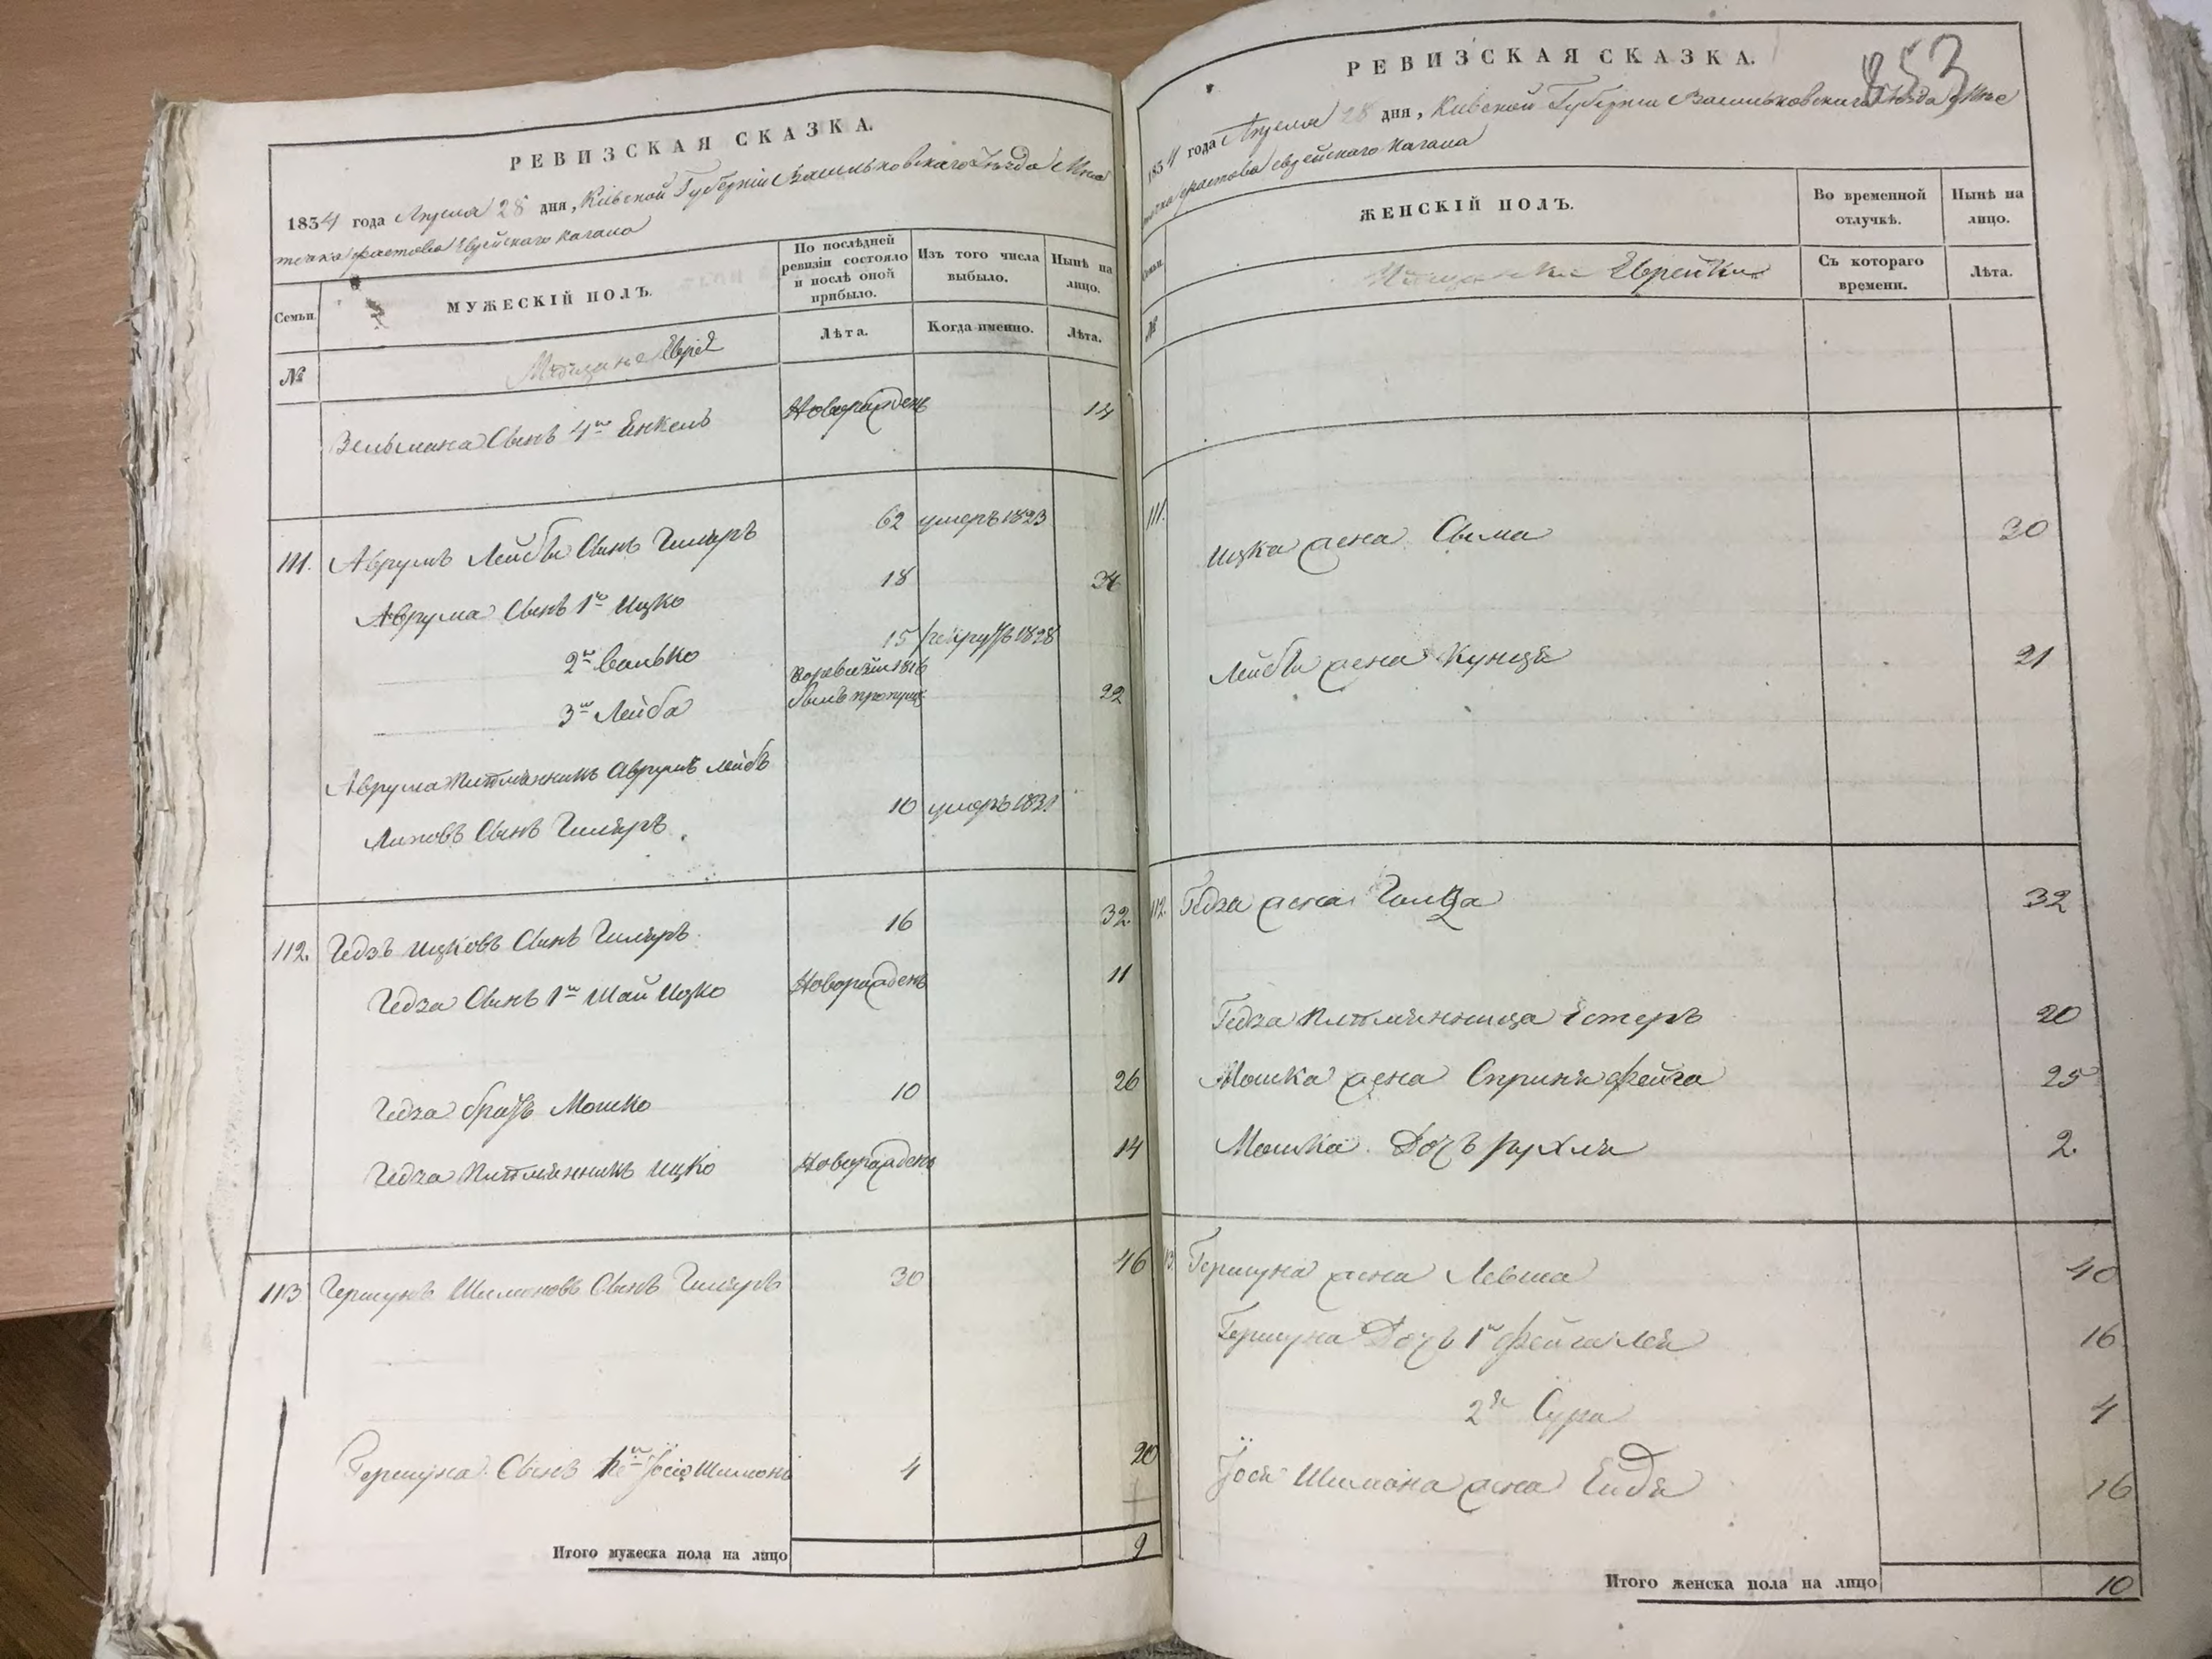 РЕВИЗСКАЯ СКАЗКА.
1834 года Апреля 28 дня, Кіевской Губерніи Васильковскаго Уѣзда Мѣс
течка Фастова Еврейскаго Кагала
Семьи.
МУЖЕСКІЙ ПОЛЪ.
По послѣдней ревизіи состояло и послѣ оной прибыло.
Изъ того числа выбыло.
Нынѣ на лицо.
№
Мѣщане Евреи
Лѣта.
Когда именно.
Лѣта.
Зельмана Сынъ 4й Енкель Новорожденъ 14
111. Аврумъ Лейбы Сынъ Гиляръ 62 умеръ 1823
Аврума Сынъ 1й Ицко 18 34
2й Волько 15 рекрутъ 1828
3й Лейба по ревизіи 1816 былъ пропущ: 22
Аврума Племянникъ Аврумъ Лейбъ
Липовъ Сынъ Гиляръ. 10 умеръ 1831
112. Гедзъ Ицковъ Сынъ Гиляръ 16 32.
Гедза Сынъ 1й Шай Ицко Новорожденъ 11
Гедза братъ Мошко 10 26
Гедза Племянникъ Ицко Новорожденъ 14
113 Гершунъ Шимоновъ Сынъ Гиляръ 30 46
Гершуна Сынъ 1й Іосіо Шимонъ 4 20
Итого мужеска пола на лицо 9
РЕВИЗСКАЯ СКАЗКА.
853
1834 года Апреля 28 дня, Кіевской Губерніи Васильковскаго Уѣзда Мѣс
течка Фастова Еврейскаго Кагала
Семьи.
ЖЕНСКІЙ ПОЛЪ.
Во временной отлучкѣ.
Нынѣ на лицо.
№
Мѣщанки Еврейки
Съ котораго времени.
Лѣта.
111. Ицка жена Сыма 30
Лейбы жена Куня 21
112. Гедза жена Голда 32
Гедза Племянница Естеръ 20
Мошка жена Сприня Фейга 25
Мошка Дочь Рухля 2.
13. Гершуна жена Левша 40
Гершуна Дочь 1я Фейга Лея 16
2я Сура 4
Іося Шимона жена Ендя 16
Итого женска пола на лицо 10